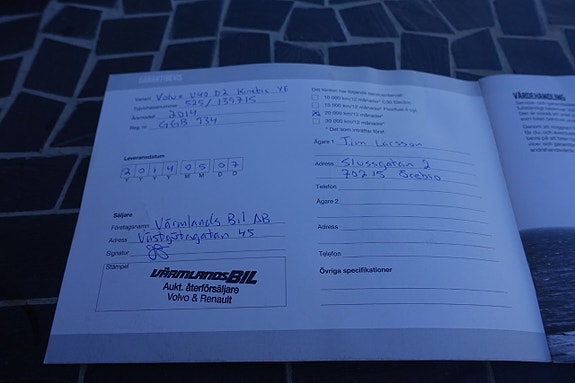 GARANTIBEVIS
Variant Volvo V40 D2 Kinetic YE
Typ/chassinummer 525/139715
Årsmodell 2014
Reg. nr GGB 934
Leveransdatum
2 0 1 4 0 5 0 7
Y Y Y Y M M D D
Säljare
Företagsnamn Värmlands Bil AB
Adress Västgötagatan 45
Signatur
Stämpel
VÄRMLANDSBIL
Aukt. återförsäljare
Volvo & Renault
Din Volvo har följande serviceintervall:
10 000 km/12 månader*
20 000 km/12 månader*
30 000 km/12 månader*
* Det som inträffar först.
Ägare 1 Tim Larsson
Adress Slussgatan 2
70215 Örebro
Telefon
Ägare 2
Adress
Telefon
Övriga specifikationer
VÄRDEHANDLING